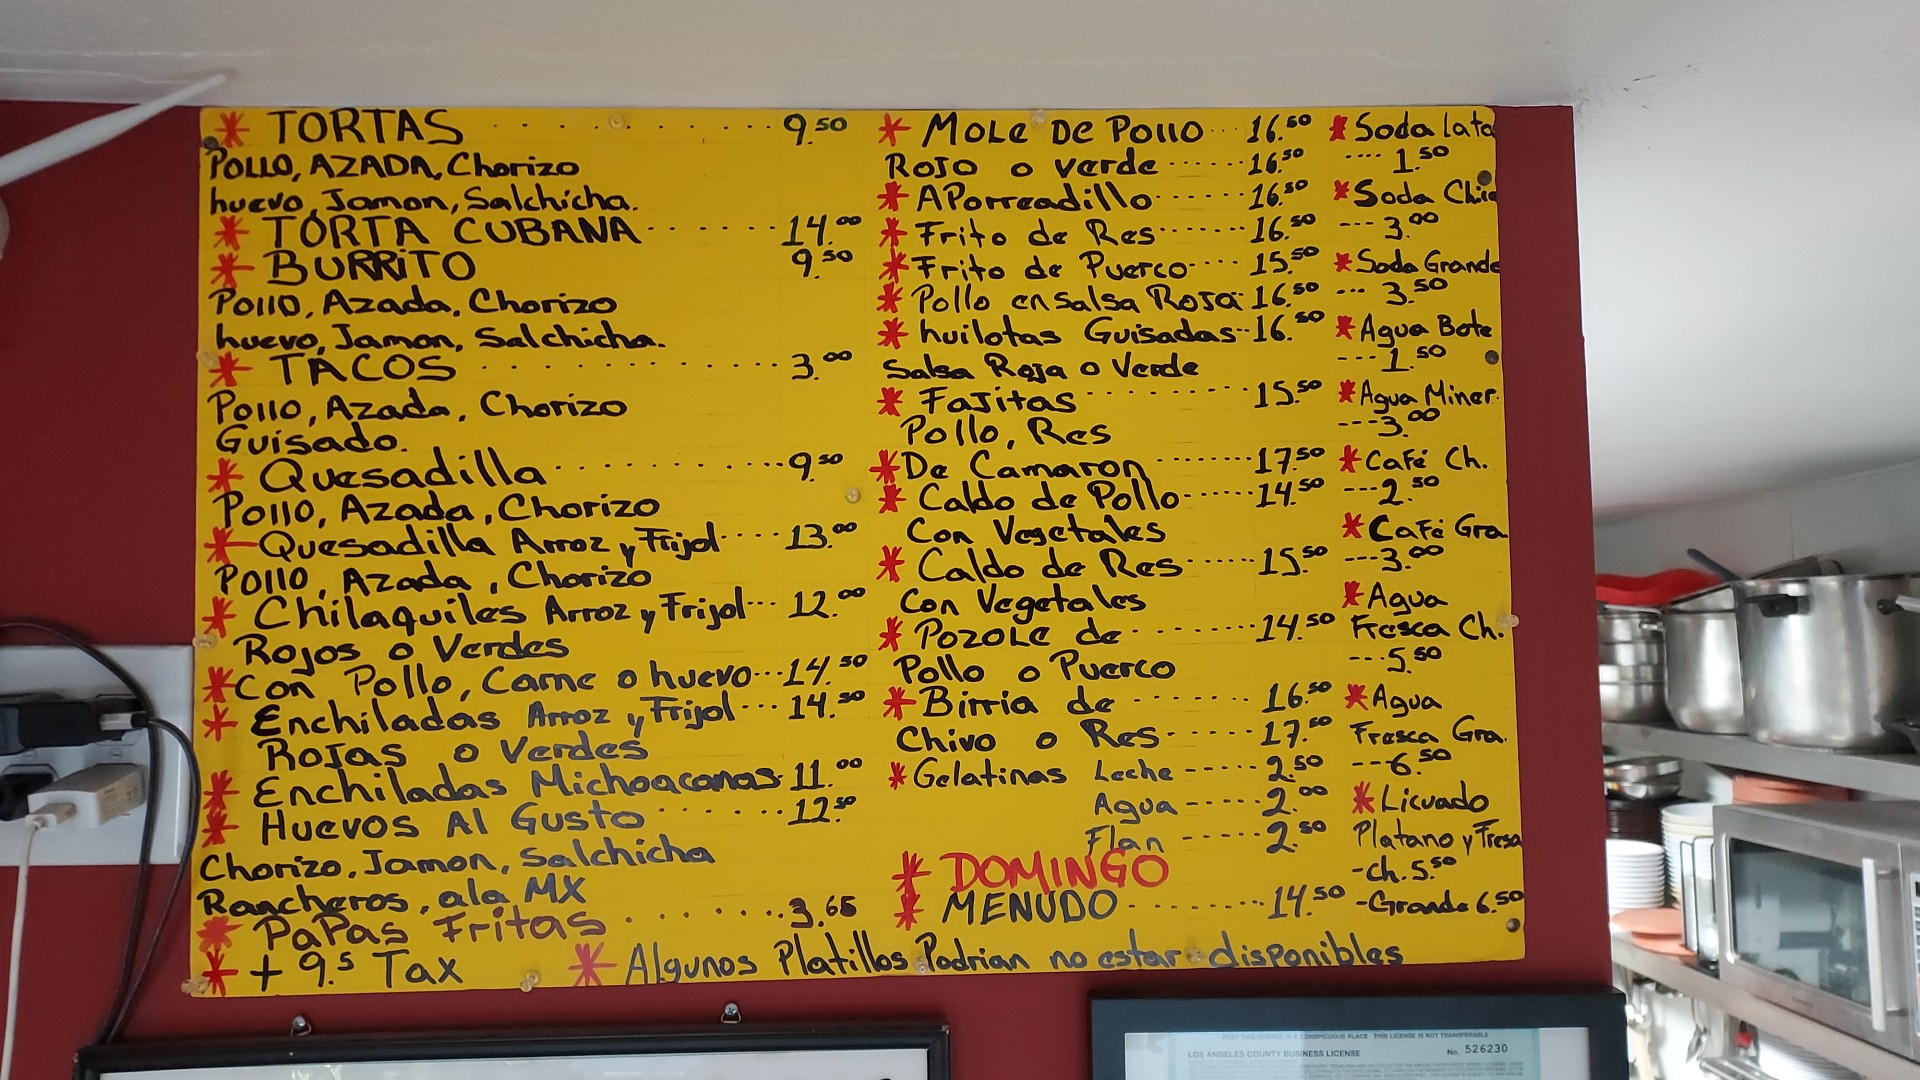 * TORTAS . . . . . . . . . . . 9.50
POLLO, AZADA, Chorizo
huevo, Jamon, Salchicha.
* TORTA CUBANA . . . . . . 14.00
* BURRITO 9.50
Pollo, Azada, Chorizo
huevo, Jamon, Salchicha.
* TACOS . . . . . . . . . . . . 3.00
Pollo, Azada, Chorizo
Guisado.
* Quesadilla . . . . . . . . . . 9.50
Pollo, Azada, Chorizo
* Quesadilla Arroz y Frijol .... 13.00
Pollo, Azada, Chorizo
* Chilaquiles Arroz y Frijol... 12.00
Rojos o Verdes
* Con Pollo, Carne o huevo... 14.50
* Enchiladas Arroz y Frijol... 14.50
Rojas o Verdes
* Enchiladas Michoacanas. 11.00
* Huevos Al Gusto . . . . . . 12.50
Chorizo, Jamon, Salchicha
Rancheros, ala MX
* PaPas Fritas . . . . . . 3.65
* + 9.5 Tax
* Mole De Pollo ... 16.50
Rojo o verde ...... 16.50
* APorreadillo ...... 16.50
* Frito de Res ....... 16.50
* Frito de Puerco .... 15.50
* Pollo en salsa Roja: 16.50
* huilotas Guisadas.. 16.50
Salsa Roja o Verde
* FaJitas . . . . . . . . 15.50
Pollo, Res
* De Camaron ........ 17.50
* Caldo de Pollo ...... 14.50
Con Vegetales
* Caldo de Res ..... 15.50
Con Vegetales
* Pozole de ........ 14.50
Pollo o Puerco
* Birria de ------- 16.50
Chivo o Res ----- 17.50
* Gelatinas Leche ----- 2.50
Agua ----- 2.00
Flan ----- 2.50
* DOMINGO
* MENUDO --------- 14.50
* Algunos Platillos Podrian no estar disponibles
* Soda lata
.... 1.50
* Soda Chic
--- 3.00
* Soda Grande
--- 3.50
* Agua Bote
--- 1.50
* Agua Miner.
--- 3.00
* Café Ch.
--- 2.50
* Café Gra
--- 3.00
* Agua
Fresca Ch.
--- 5.50
* Agua
Fresca Gra.
--- 6.50
* Licuado
Platano y Fresa
-Ch. 5.50
-Grande 6.50
POST THIS LICENSE IN A CONSPICUOUS PLACE THIS LICENSE IS NOT TRANSFERABLE
LOS ANGELES COUNTY BUSINESS LICENSE No. 526230